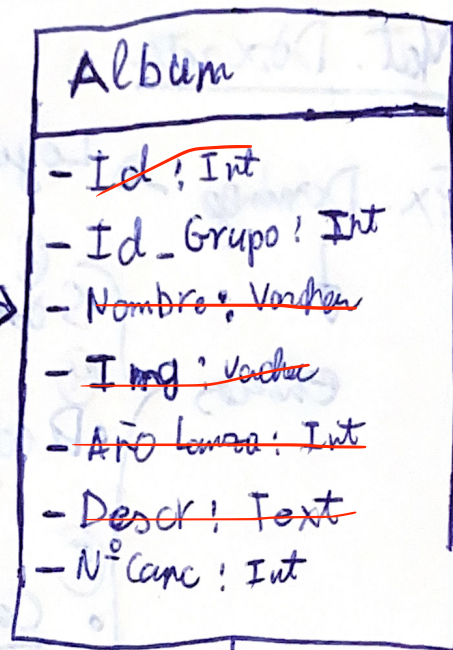 Album
- Id : Int
- Id_Grupo : Int
- Nombre : Varchar
- Img : Vachar
- Año Lanza : Int
- Descr : Text
- NºCanc : Int